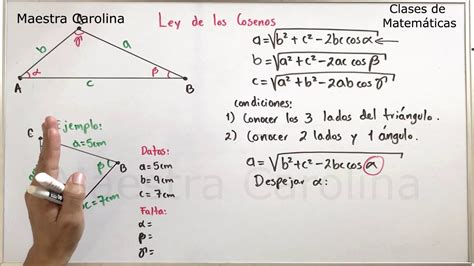 Maestra Carolina
Ley de los Cosenos
Clases de
Matemáticas
b
a
γ
α
c
β
A
B
a=√b²+c²-2bc cos α
b=√a²+c²-2ac cos β
c=√a²+b²-2ab cos γ
condiciones:
1) Conocer los 3 lados del triángulo.
2) Conocer 2 lados y 1 ángulo.
C
Ejemplo:
a=5cm
β
B
c=7cm
Datos:
a=5cm
b=9cm
c=7cm
Falta:
α=
β=
γ=
a=√b²+c²-2bc cos α
Despejar α:
Maestra Carolina